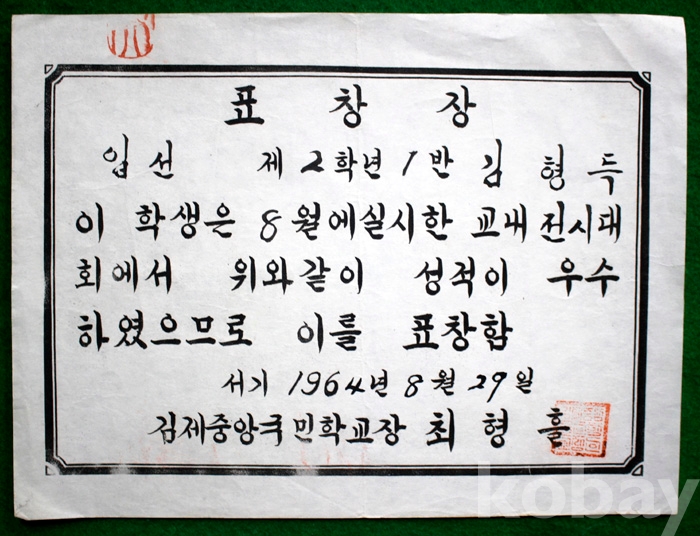 표 창 장
입선 제 2학년 1반 김 형 득
이 학생은 8월에실시한 교내 전시대
회에서 위와같이 성적이 우수
하였으므로 이를 표창함
서기 1964년 8월 29일
김제중앙국민학교장 최 형 흘
kobay